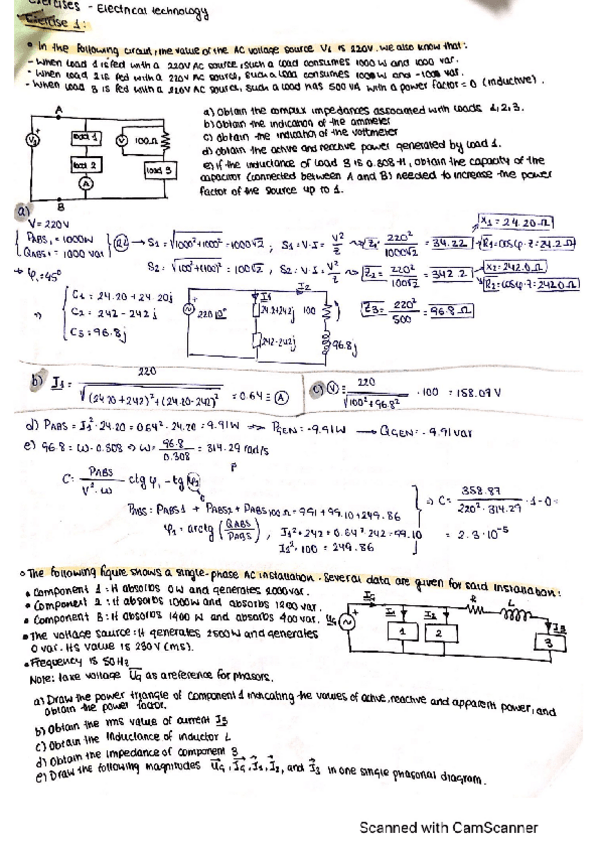 Exercises - Electrical technology
Exercise 1:
• In the following circuit, the value of the AC voltage source Vs is 220V. We also know that:
- When load 1 is fed with a 220V AC source, such a load consumes 1000 W and 1000 var.
- When load 2 is fed with a 220V AC source, such a load consumes 100 W and -100 var.
- When load 3 is fed with a 220V AC source, such a load has 500 VA with a power factor = 0 (inductive).
A
a) Obtain the complex impedances associated with loads 1,2,3.
b) Obtain the indication of the ammeter
c) Obtain the indication of the voltmeter
d) Obtain the active and reactive power generated by load 1.
e) If the inductance of load 3 is 0.308 H, obtain the capacity of the
capacitor (connected between A and B) needed to increase the power
factor of the source up to 1.
Vs
load 1
V
100Ω
load 2
load 3
A
B
a)
V = 220V
PABS1 = 1000W
QABS1 = 1000 var
→ φ1 = 45°
S1 = √1000²+1000² = 1000√2 ; S1 = V·I = V²/Z → Z1 = 220²/1000√2 = 34.22
X1 = 24.20 Ω
R1 = cosφ·Z = 24.2 Ω
S2 = √100²+(100)² = 100√2 ; S2 = V·I = V²/Z → Z2 = 220²/100√2 = 342.2
X2 = 242.0 Ω
R2 = cosφ·Z = 242.0 Ω
C1 = 24.20 + 24.20j
C2 = 242 - 242j
C3 = 96.8j
220|0°
I1
I2
24.2+24.2j
100
242-242j
96.8j
Z3 = 220²/500 = 96.8 Ω
b) I1 = 220/√(24.20+242)²+(24.20-242)² = 0.64 = A
c) V = 220/√100²+96.8² · 100 = 158.07 V
d) PABS = I1²·24.20 = 0.64²·24.20 = 9.91W => PGEN = -9.91W → QGEN = -9.91 var
e) 96.8 = ω·0.308 → ω = 96.8/0.308 = 314.29 rad/s
C = PABS/V²·ω · ctg φ1 - tg φ2
PABS = PABS1 + PABS2 + PABS100Ω = 9.91 + 99.10 + 249.86
φ1 = arctg (QABS/PABS), I1²·242 = 0.64²·242 = 99.10
I2²·100 = 249.86
→ C = 358.87/220²·314.29 · 1-0
= 2.3·10⁻⁵
• The following figure shows a single-phase AC installation. Several data are given for said installation:
• Component 1: It absorbs 0 W and generates 2000 var.
• Component 2: It absorbs 1000 W and absorbs 1200 var.
• Component 3: It absorbs 1400 W and absorbs 400 var.
• The voltage source: It generates 2500 W and generates
0 var. Its value is 230 V (rms).
• Frequency is 50 Hz
Note: take voltage Ug as a reference for phasors.
Ug
Ig
I1
I2
R
L
I3
1
2
3
a) Draw the power triangle of component 1 indicating the values of active, reactive and apparent power, and
obtain the power factor.
b) Obtain the rms value of current I3
c) Obtain the inductance of inductor L
d) Obtain the impedance of component 3
e) Draw the following magnitudes Ug, Ig, I1, I2, and I3 in one single phasorial diagram.
Scanned with CamScanner